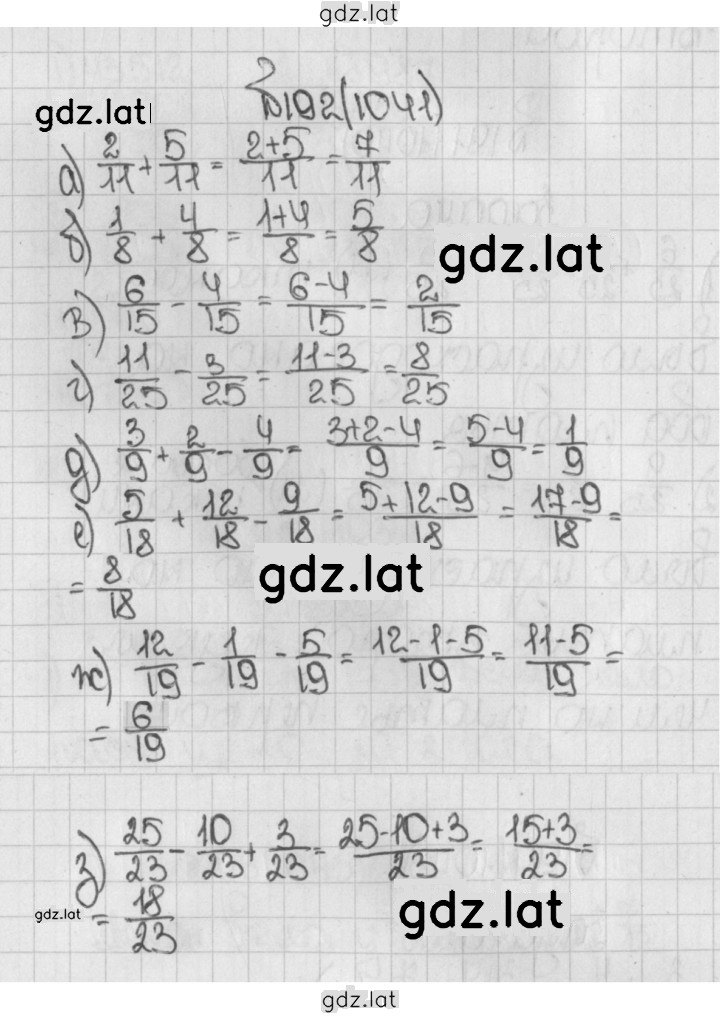 gdz.lat
№192(1041)
gdz.lat
а) 2/11 + 5/11 = (2+5)/11 = 7/11
б) 1/8 + 4/8 = (1+4)/8 = 5/8
gdz.lat
в) 6/15 - 4/15 = (6-4)/15 = 2/15
г) 11/25 - 3/25 = (11-3)/25 = 8/25
д) 3/9 + 2/9 - 4/9 = (3+2-4)/9 = (5-4)/9 = 1/9
е) 5/18 + 12/18 - 9/18 = (5+12-9)/18 = (17-9)/18 =
= 8/18
gdz.lat
ж) 12/19 - 1/19 - 5/19 = (12-1-5)/19 = (11-5)/19 =
= 6/19
з) 25/23 - 10/23 + 3/23 = (25-10+3)/23 = (15+3)/23 =
= 18/23
gdz.lat
gdz.lat
gdz.lat